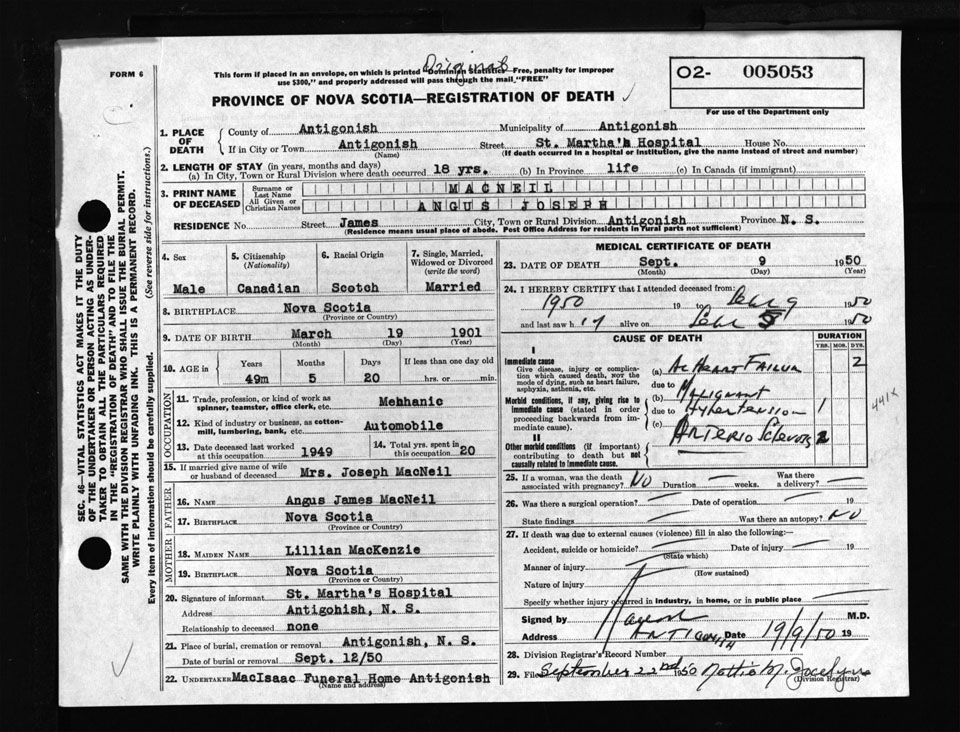 FORM 6
Original
This form if placed in an envelope, on which is printed "Dominion Statistics—Free, penalty for improper
use $300," and properly addressed will pass through the mail "FREE"
O2- 005053
For use of the Department only
PROVINCE OF NOVA SCOTIA—REGISTRATION OF DEATH ✓
1. PLACE OF DEATH County of Antigonish Municipality of Antigonish
If in City or Town Antigonish Street St. Martha's Hospital House No.
(Name) (If death occurred in a hospital or institution, give the name instead of street and number)
2. LENGTH OF STAY (in years, months and days)
(a) In City, Town or Rural Division where death occurred 18 yrs. (b) In Province life (c) In Canada (if immigrant)
3. PRINT NAME OF DECEASED Surname or Last Name MACNEIL
All Given or Christian Names ANGUS JOSEPH
RESIDENCE No. Street James City, Town or Rural Division Antigonish Province N. S.
(Residence means usual place of abode. Post Office Address for residents in rural parts not sufficient)
4. Sex
Male
5. Citizenship
(Nationality)
Canadian
6. Racial Origin
Scotch
7. Single, Married,
Widowed or Divorced
(write the word)
Married
8. BIRTHPLACE Nova Scotia
(Province or Country)
9. DATE OF BIRTH March 19 1901
(Month) (Day) (Year)
10. AGE in Years Months Days If less than one day old
49m 5 20 hrs. or min.
OCCUPATION
11. Trade, profession, or kind of work as
spinner, teamster, office clerk, etc. Mehhanic
12. Kind of industry or business, as cotton-
mill, lumbering, bank, etc. Automobile
13. Date deceased last worked
at this occupation 1949
14. Total yrs. spent in
this occupation 20
15. If married give name of wife
or husband of deceased Mrs. Joseph MacNeil
FATHER
16. NAME Angus James MacNeil
17. BIRTHPLACE Nova Scotia
(Province or Country)
MOTHER
18. MAIDEN NAME Lillian MacKenzie
19. BIRTHPLACE Nova Scotia
(Province or Country)
20. Signature of informant St. Martha's Hospital
Address Antigohish, N. S.
Relationship to deceased none
21. Place of burial, cremation or removal Antigonish, N. S.
Date of burial or removal Sept. 12/50
22. UNDERTAKER MacIsaac Funeral Home Antigonish
(Name and address)
MEDICAL CERTIFICATE OF DEATH
23. DATE OF DEATH Sept. 9 1950
(Month) (Day) (Year)
24. I HEREBY CERTIFY that I attended deceased from:
1950 19 to 9 1950
and last saw h alive on 1950
CAUSE OF DEATH
DURATION
YRS. MOS. DYS.
I
Immediate cause
Give disease, injury or complica-
tion which caused death, NOT the
mode of dying, such as heart failure,
asphyxia, asthenia, etc.
(a) Ac Heart Failure 2
due to
Morbid conditions, if any, giving rise to
immediate cause (stated in order
proceeding backwards from im-
mediate cause).
(b) Malignant
due to Hypertension 1
(c)
II
Other morbid conditions (if important)
contributing to death but not
causally related to immediate cause.
Arterio Sclerosis 2
441X
25. If a woman, was the death
associated with pregnancy? No Duration weeks. Was there
a delivery?
26. Was there a surgical operation? Date of operation 19
State findings Was there an autopsy? No
27. If death was due to external causes (violence) fill in also the following:—
Accident, suicide or homicide? Date of injury 19
(State which)
Manner of injury
(How sustained)
Nature of injury
Specify whether injury occurred in industry, in home, or in public place
Signed by M.D.
Address Antigonish Date 19/9/50 19
28. Division Registrar's Record Number
29. Filed September 22nd 1950 Nottie M. Jocelyn
(Division Registrar)
SEC. 46—VITAL STATISTICS ACT MAKES IT THE DUTY
OF THE UNDERTAKER OR PERSON ACTING AS UNDER-
TAKER TO OBTAIN ALL THE PARTICULARS REQUIRED
IN THE "REGISTRATION OF DEATH" AND TO FILE THE
SAME WITH THE DIVISION REGISTRAR WHO SHALL ISSUE THE BURIAL PERMIT.
WRITE PLAINLY WITH UNFADING INK. THIS IS A PERMANENT RECORD.
Every item of information should be carefully supplied. (See reverse side for instructions.)